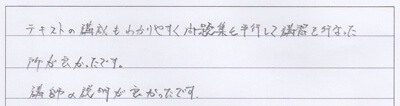 テキストの講義もわかりやすく問題集と平行して講習を行なった
所が良かったです。
講師の説明が良かったです。